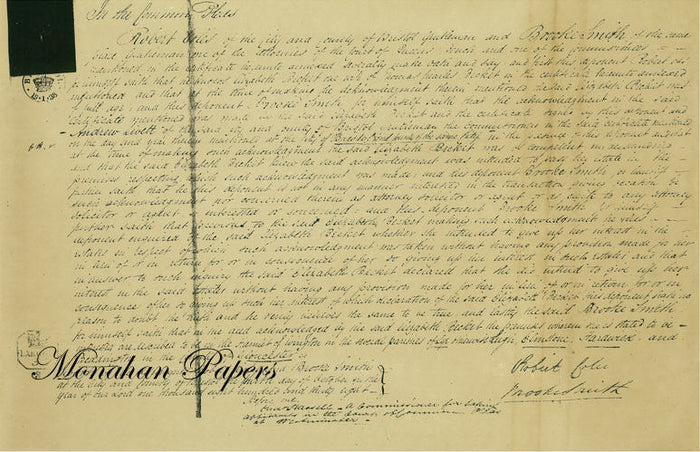 In the Common Pleas
Robert Coles of the city and county of Bristol Gentleman and Brooke Smith of the same
place Gentleman one of the Attornies of the Court of Queens Bench and one of the Commissioners
mentioned in the certificate hereunto annexed severally make oath and say and first this deponent Robert Coles for
himself saith that he knows Elizabeth Becket the wife of Thomas Charles Becket in the certificate hereunto annexed
mentioned and that at the time of making the acknowledgment therein mentioned the said Elizabeth Becket was
of full age; and this deponent Brooke Smith for himself saith that the acknowledgment in the said
certificate mentioned was made by the said Elizabeth Becket and the certificate signed by this deponent and
Andrew Livett of the said city and county of Bristol gentleman the Commissioners in the said certificate mentioned
on the day and year therein mentioned at the city of Bristol in the presence of this deponent and that
at the time of making such acknowledgment the said Elizabeth Becket was of competent understanding
and that the said Elizabeth Becket knew the said acknowledgment was intended to pass her estate in the
premises respecting which such acknowledgment was made; and this deponent Brooke Smith for himself
further saith that he this deponent is not in any manner interested in the transaction giving occasion for
such acknowledgment nor concerned therein as attorney solicitor or agent or as clerk to any attorney
solicitor or agent so interested or concerned; and this deponent Brooke Smith for himself
further saith that previous to the said Elizabeth Becket making such acknowledgment he this
deponent enquired of the said Elizabeth Becket whether she intended to give up her interest in the
estates in respect of which such acknowledgment was taken without having any provision made for her
in lieu of or in return for or in consequence of her so giving up her interest in such estates and that
in answer to such inquiry the said Elizabeth Becket declared that she did intend to give up her
interest in the said estates without having any provision made for her in lieu of or in return for or in
consequence of her so giving up such her interest of which declaration of the said Elizabeth Becket this deponent saith no
reason to doubt the truth and he verily believes the same to be true and lastly the said Brooke Smith
for himself saith that in the said acknowledgment by the said Elizabeth Becket the premises wherein she is stated to be
interested are described to be in the parishes of and
in the Gloucester
Brooke Smith
at the city and county of Bristol day of October in the
year of our Lord one thousand eight hundred and thirty eight
Before me
A Commissioner for taking
affidavits in the Court of Common Pleas
at Westminster
Robert Coles
Brooke Smith
Monahan Papers